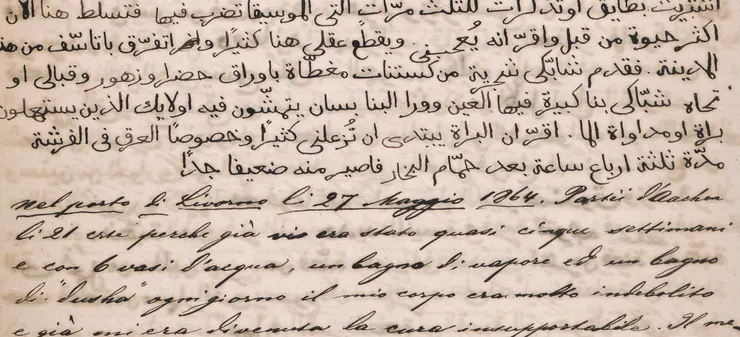 اشتريت بطايق او تذكرات للثلث مرّات التي الموسيقا تضرب فيها فتسلط هنا الان
اكثر حيوة من قبل واقرّ انه يُعجبني ويقطع عقلي هنا كثيرًا واتفرّق باتاسّف من هذه
المدينة. فقدم شبّاكي شجرية من كستنات مغطّاة باوراق خضرا وزهور وقبالي او
تجاه شبّاكي بنا كبيرة فيها العين وورا البنا بستان يتمشّون فيه اولايك الذين يستعملون
براة او مداواة الما. اقرّ ان البراة يبتدي ان تُزعلني كثيرًا وخصوصًا العرق في الفرشة
مدّة ثلثة ارباع ساعة بعد حمّام البخار فاصير منه ضعيفا جدًا
nel porto di Livorno li 27 Maggio 1864. Partii d'Aachen
li 21 crte perche già vis era stato quasi cinque settimani
e con 6 vasi d'acqua, un bagno di vapore ed un bagno
di "dusha" ogni giorno il mio corpo era molto indebolito
e già mi era divenuta la cura insupportabile. Il me-